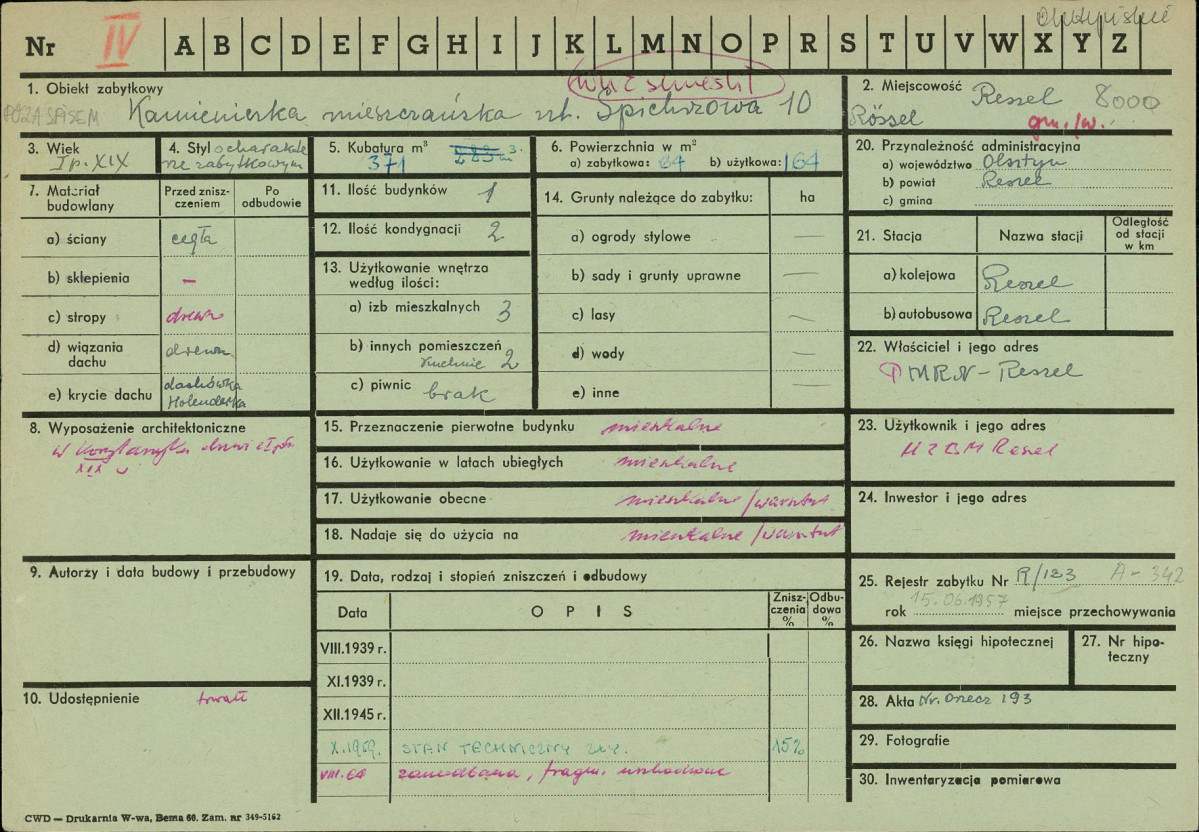 Nr IV A B C D E F G H I J K L M N O P R S T U V W X Y Z
1. Obiekt zabytkowy
POZA SPISEM Kamieniczka mieszczańska ul. Spichrzowa 10
2. Miejscowość Reszel 8000
Rössel gm./w.
3. Wiek
I p. XIX
4. Styl o charakte
rze zabytkowym
5. Kubatura m³
371 283 m³.
6. Powierzchnia w m²
a) zabytkowa: 64 b) użytkowa: 164
7. Materiał budowlany
Przed zniszczeniem
Po odbudowie
a) ściany cegła
b) sklepienia –
c) stropy drewn
d) wiązania dachu drewn.
e) krycie dachu dachówka
Holenderka
8. Wyposażenie architektoniczne
XIX
9. Autorzy i data budowy i przebudowy
10. Udostępnienie
11. Ilość budynków 1
12. Ilość kondygnacji 2
13. Użytkowanie wnętrza
według ilości:
a) izb mieszkalnych 3
b) innych pomieszczeń
kuchnie 2
c) piwnic brak
14. Grunty należące do zabytku: ha
a) ogrody stylowe —
b) sady i grunty uprawne —
c) lasy —
d) wody —
e) inne —
15. Przeznaczenie pierwotne budynku mieszkalne
16. Użytkowanie w latach ubiegłych mieszkalne
17. Użytkowanie obecne mieszkalne/warsztat
18. Nadaje się do użycia na mieszkalne/warsztat
19. Data, rodzaj i stopień zniszczeń i odbudowy
Data
OPIS
Zniszczenia %
Odbudowa %
VIII.1939 r.
XI.1939 r.
XII.1945 r.
X.1959. STAN TECHNICZNY ZŁY. 15%
VIII.64 zaniedbana, fragm. uszkodzone
20. Przynależność administracyjna
a) województwo Olsztyn
b) powiat Reszel
c) gmina
21. Stacja
Nazwa stacji
Odległość
od stacji
w km
a) kolejowa Reszel
b) autobusowa Reszel
22. Właściciel i jego adres
P MRN – Reszel
23. Użytkownik i jego adres
MZBM Reszel
24. Inwestor i jego adres
25. Rejestr zabytku Nr R/123 A-342
rok 15.06.1957 miejsce przechowywania
26. Nazwa księgi hipotecznej
27. Nr hipoteczny
28. Akta Nr. orzecz 193
29. Fotografie
30. Inwentaryzacja pomiarowa
CWD — Drukarnia W-wa, Bema 60. Zam. nr 349-5162